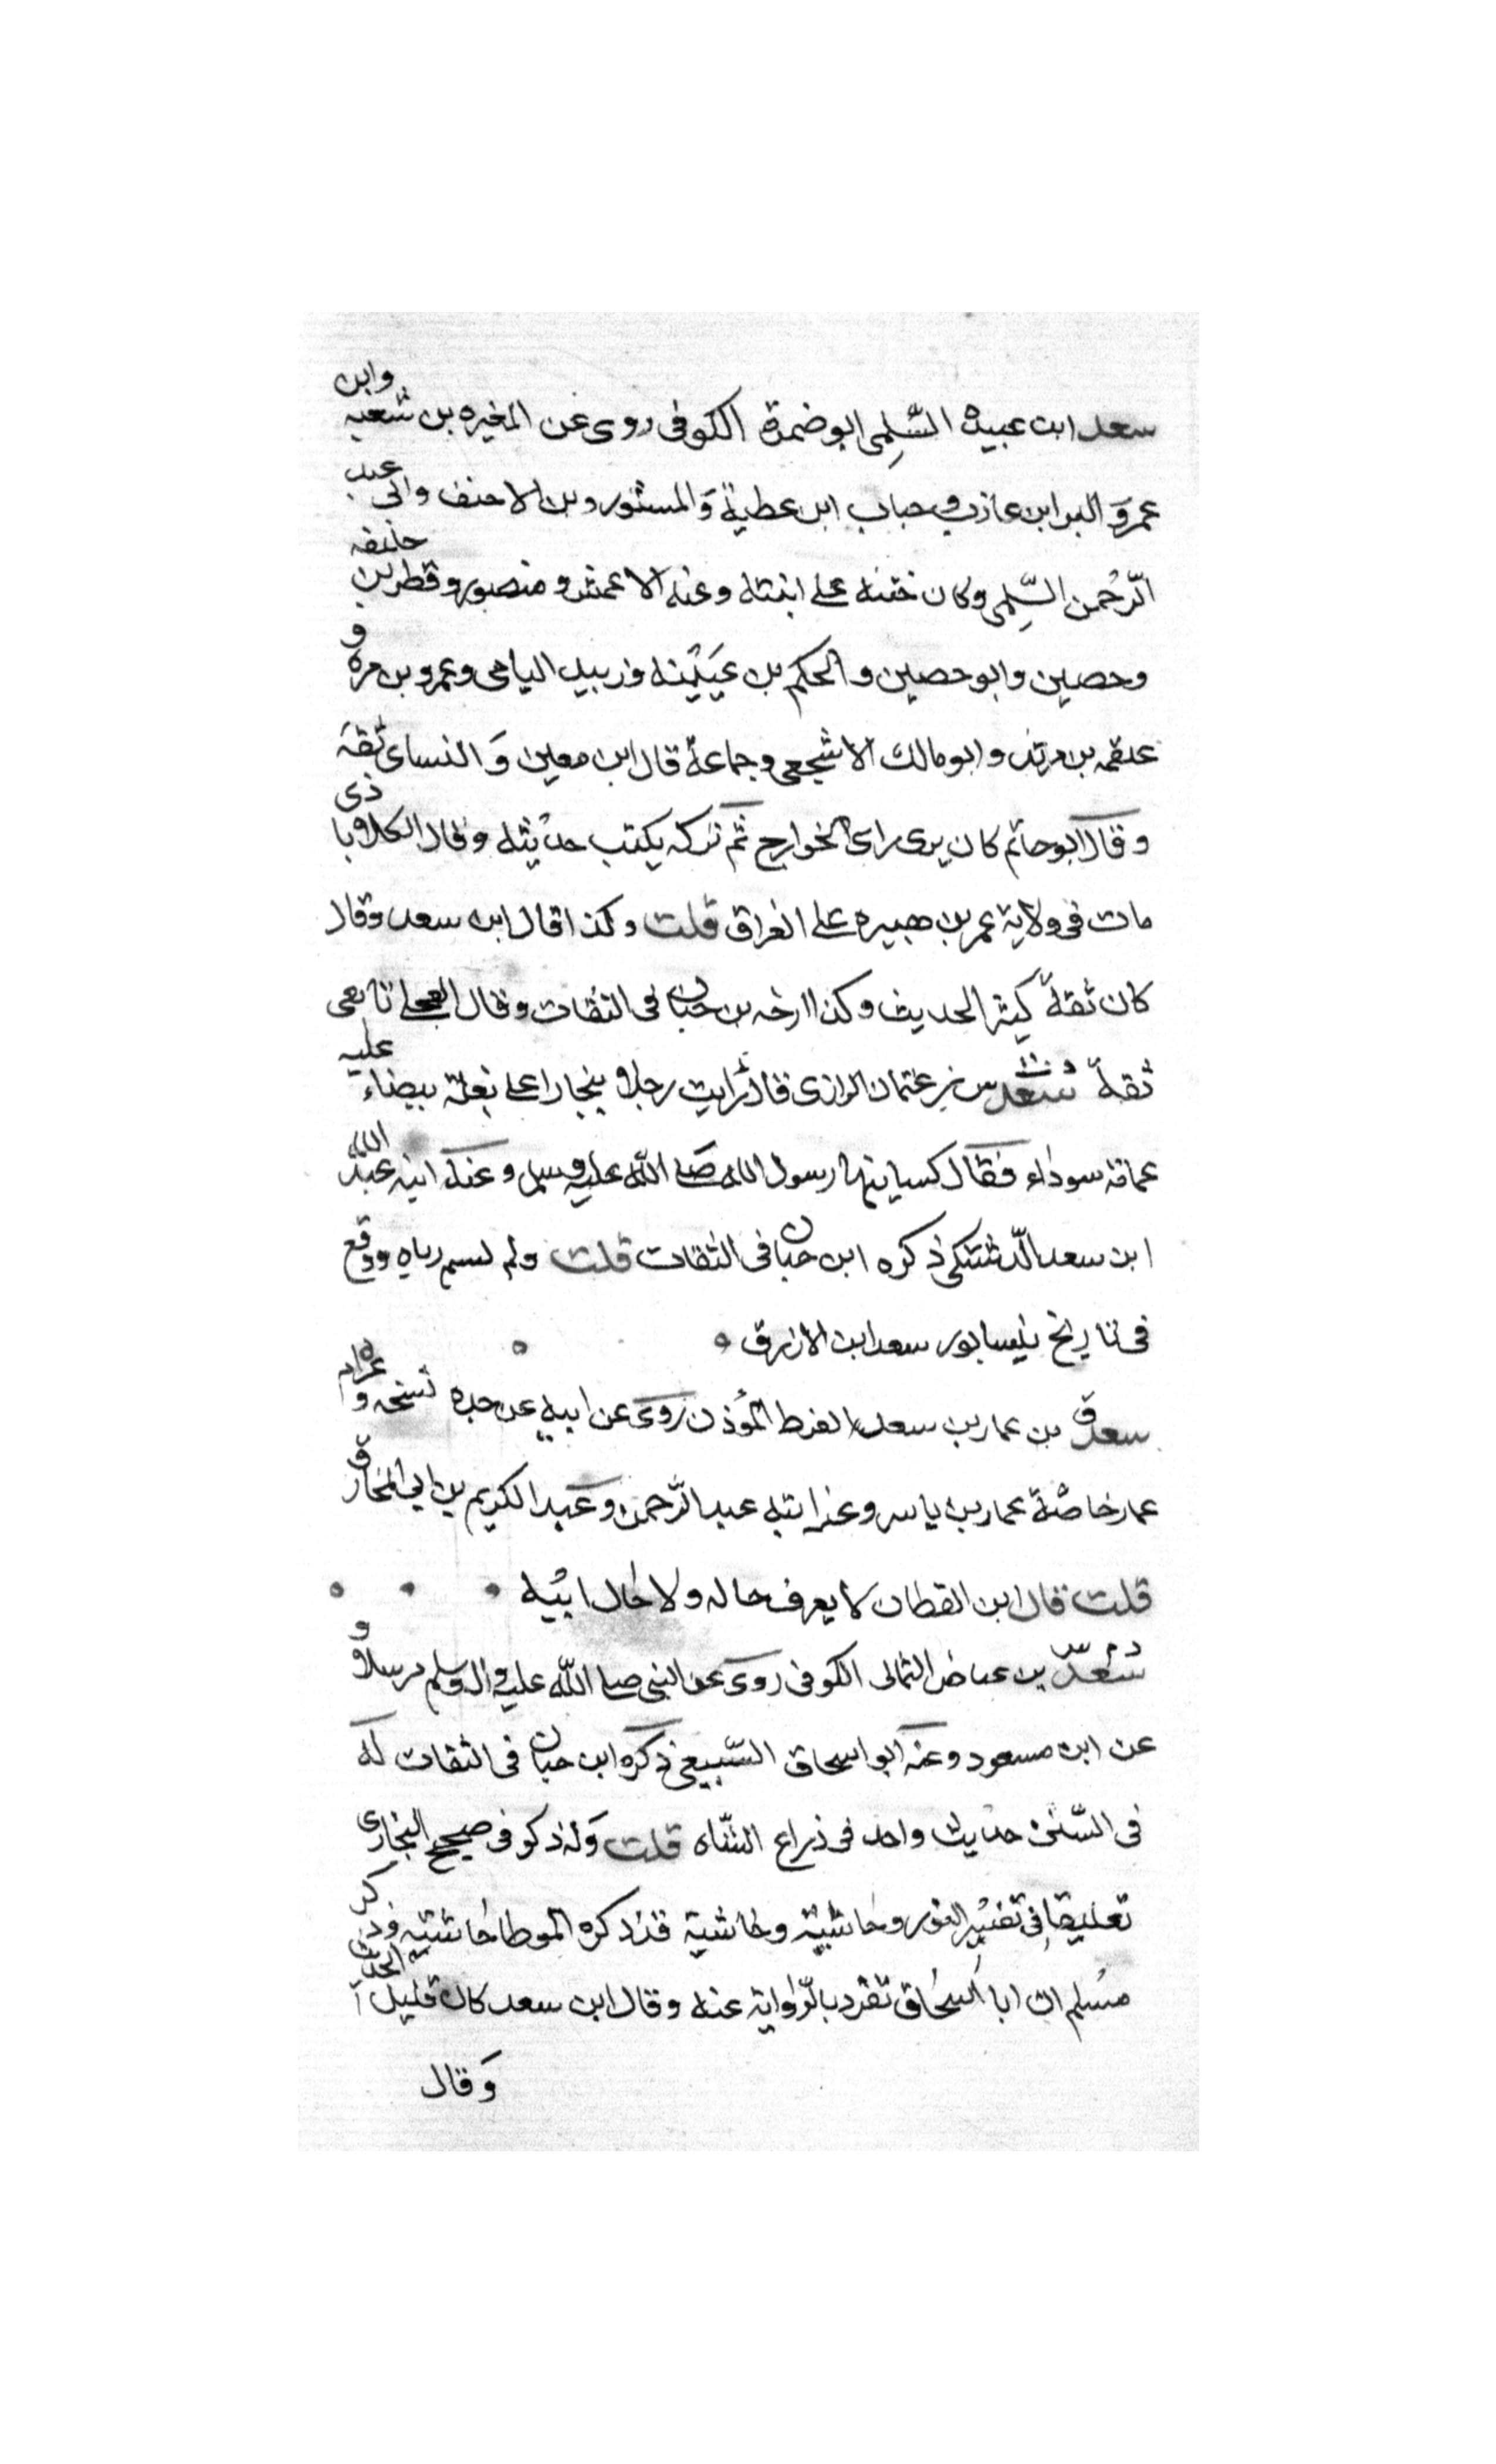 سعد ابن عبيده السّلمِى ابو ضمرة الكوفى روى عن المغيره بن شعبه وابن
عمر وَ البرا ابن عازب و حباب ابن عطية وَالمستورد بن الاحنف وابى عبد
الرّحمن السّلِمى وكان ختنه على ابنته وعنه الاعمش و منصور و قطر بن خليفه
وحصين وابو حصين والحكم بن عيَيْنه وزبيد اليامى وعمرو بن مره و
علقمه بن مرثد وابو مالك الاشجعى وجماعة قال ابن معين وَ النساى ثقه
وقال ابو حاتم كان يرى راى الخوارج ثم تركه يكتب حديثه وقال الكلابا ذى
مات فى ولاية عمر بن هبيره على العراق قلت وكذا قال ابن سعد وقال
كان ثقة كثير الحديث وكذا ارخه بن حبان فى الثقات وقال العجلى تابعى
ثقة سعد بن عثمان الرازى قال رايت رجلا ببخارا على بغلة بيضاء عليه
عمامة سوداء فقال كسانيها رسول الله صلى الله عليه وسلم وعنه ابنه عبد الله
ابن سعد الدشتكى ذكره ابن حبان فى الثقات قلت ولم يسم اباه ووقع
فى تاريخ نيسابور سعد ابن الازرق
سعد ق بن عمار بن سعد القرظ المؤذن روى عن ابيه عن جده نسخه و
عمار خاصة عمار بن ياسر وعنه ابنه عبد الرّحمن وعبد الكريم بن ابى المخارق
قلت قال ابن القطان لا يعرف حاله ولا حال ابيه
سعد بن عياض الثمالى الكوفى روى عن النبى صلى الله عليه واله وسلم مرسلا و
عن ابن مسعود وعنه ابو اسحاق السّبيعى ذكره ابن حبان فى الثقات له
فى السّنن حديث واحد فى ذراع الشاه قلت وَله ذكر فى صحيح البخارى
تعليقا فى تفسير النور وحاشيته وحاشية قد ذكره الموطا حاشيته وذكر
مسلم ان ابا اسحاق تفرد بالرّواية عنه وقال ابن سعد كان قليل الحديث
وَقال